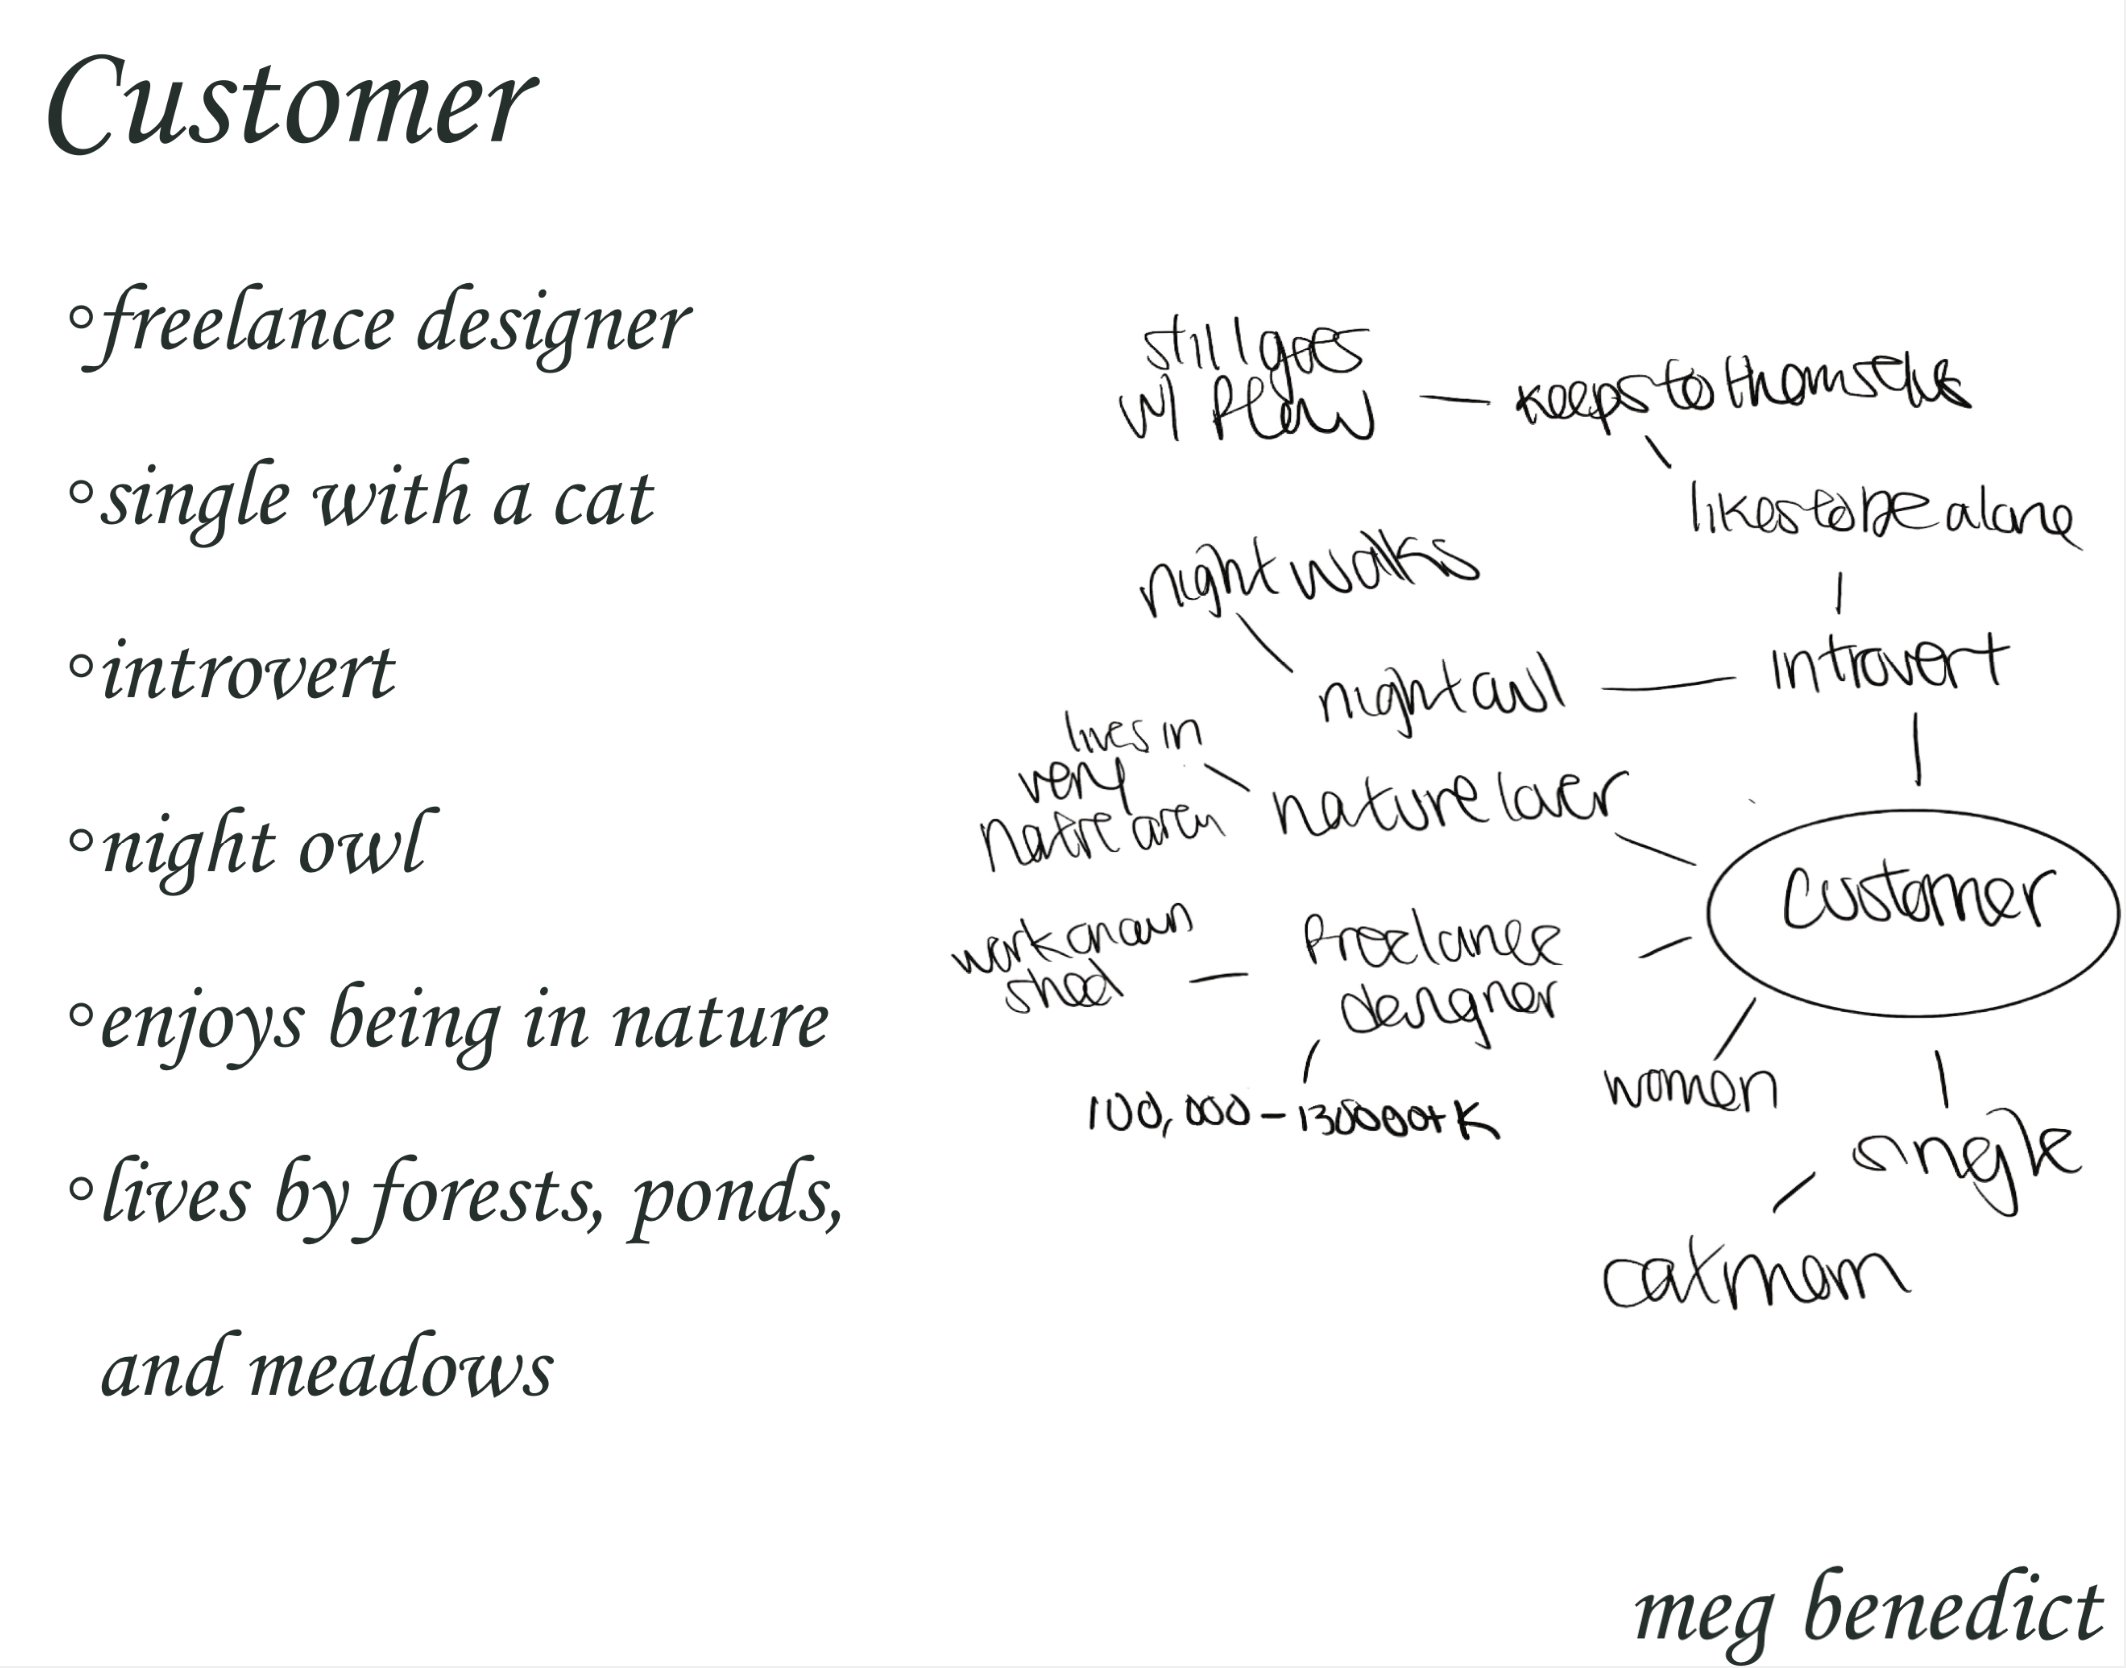 Customer
°freelance designer
°single with a cat
°introvert
°night owl
°enjoys being in nature
°lives by forests, ponds,
and meadows
still goes
w/ flow
keeps to themselves
likes to be alone
night walks
night owl
introvert
lives in
very
natre area
nature lover
Customer
work on own
shed
freelance
designer
100,000 - 130000+ K
women
single
cat mom
meg benedict